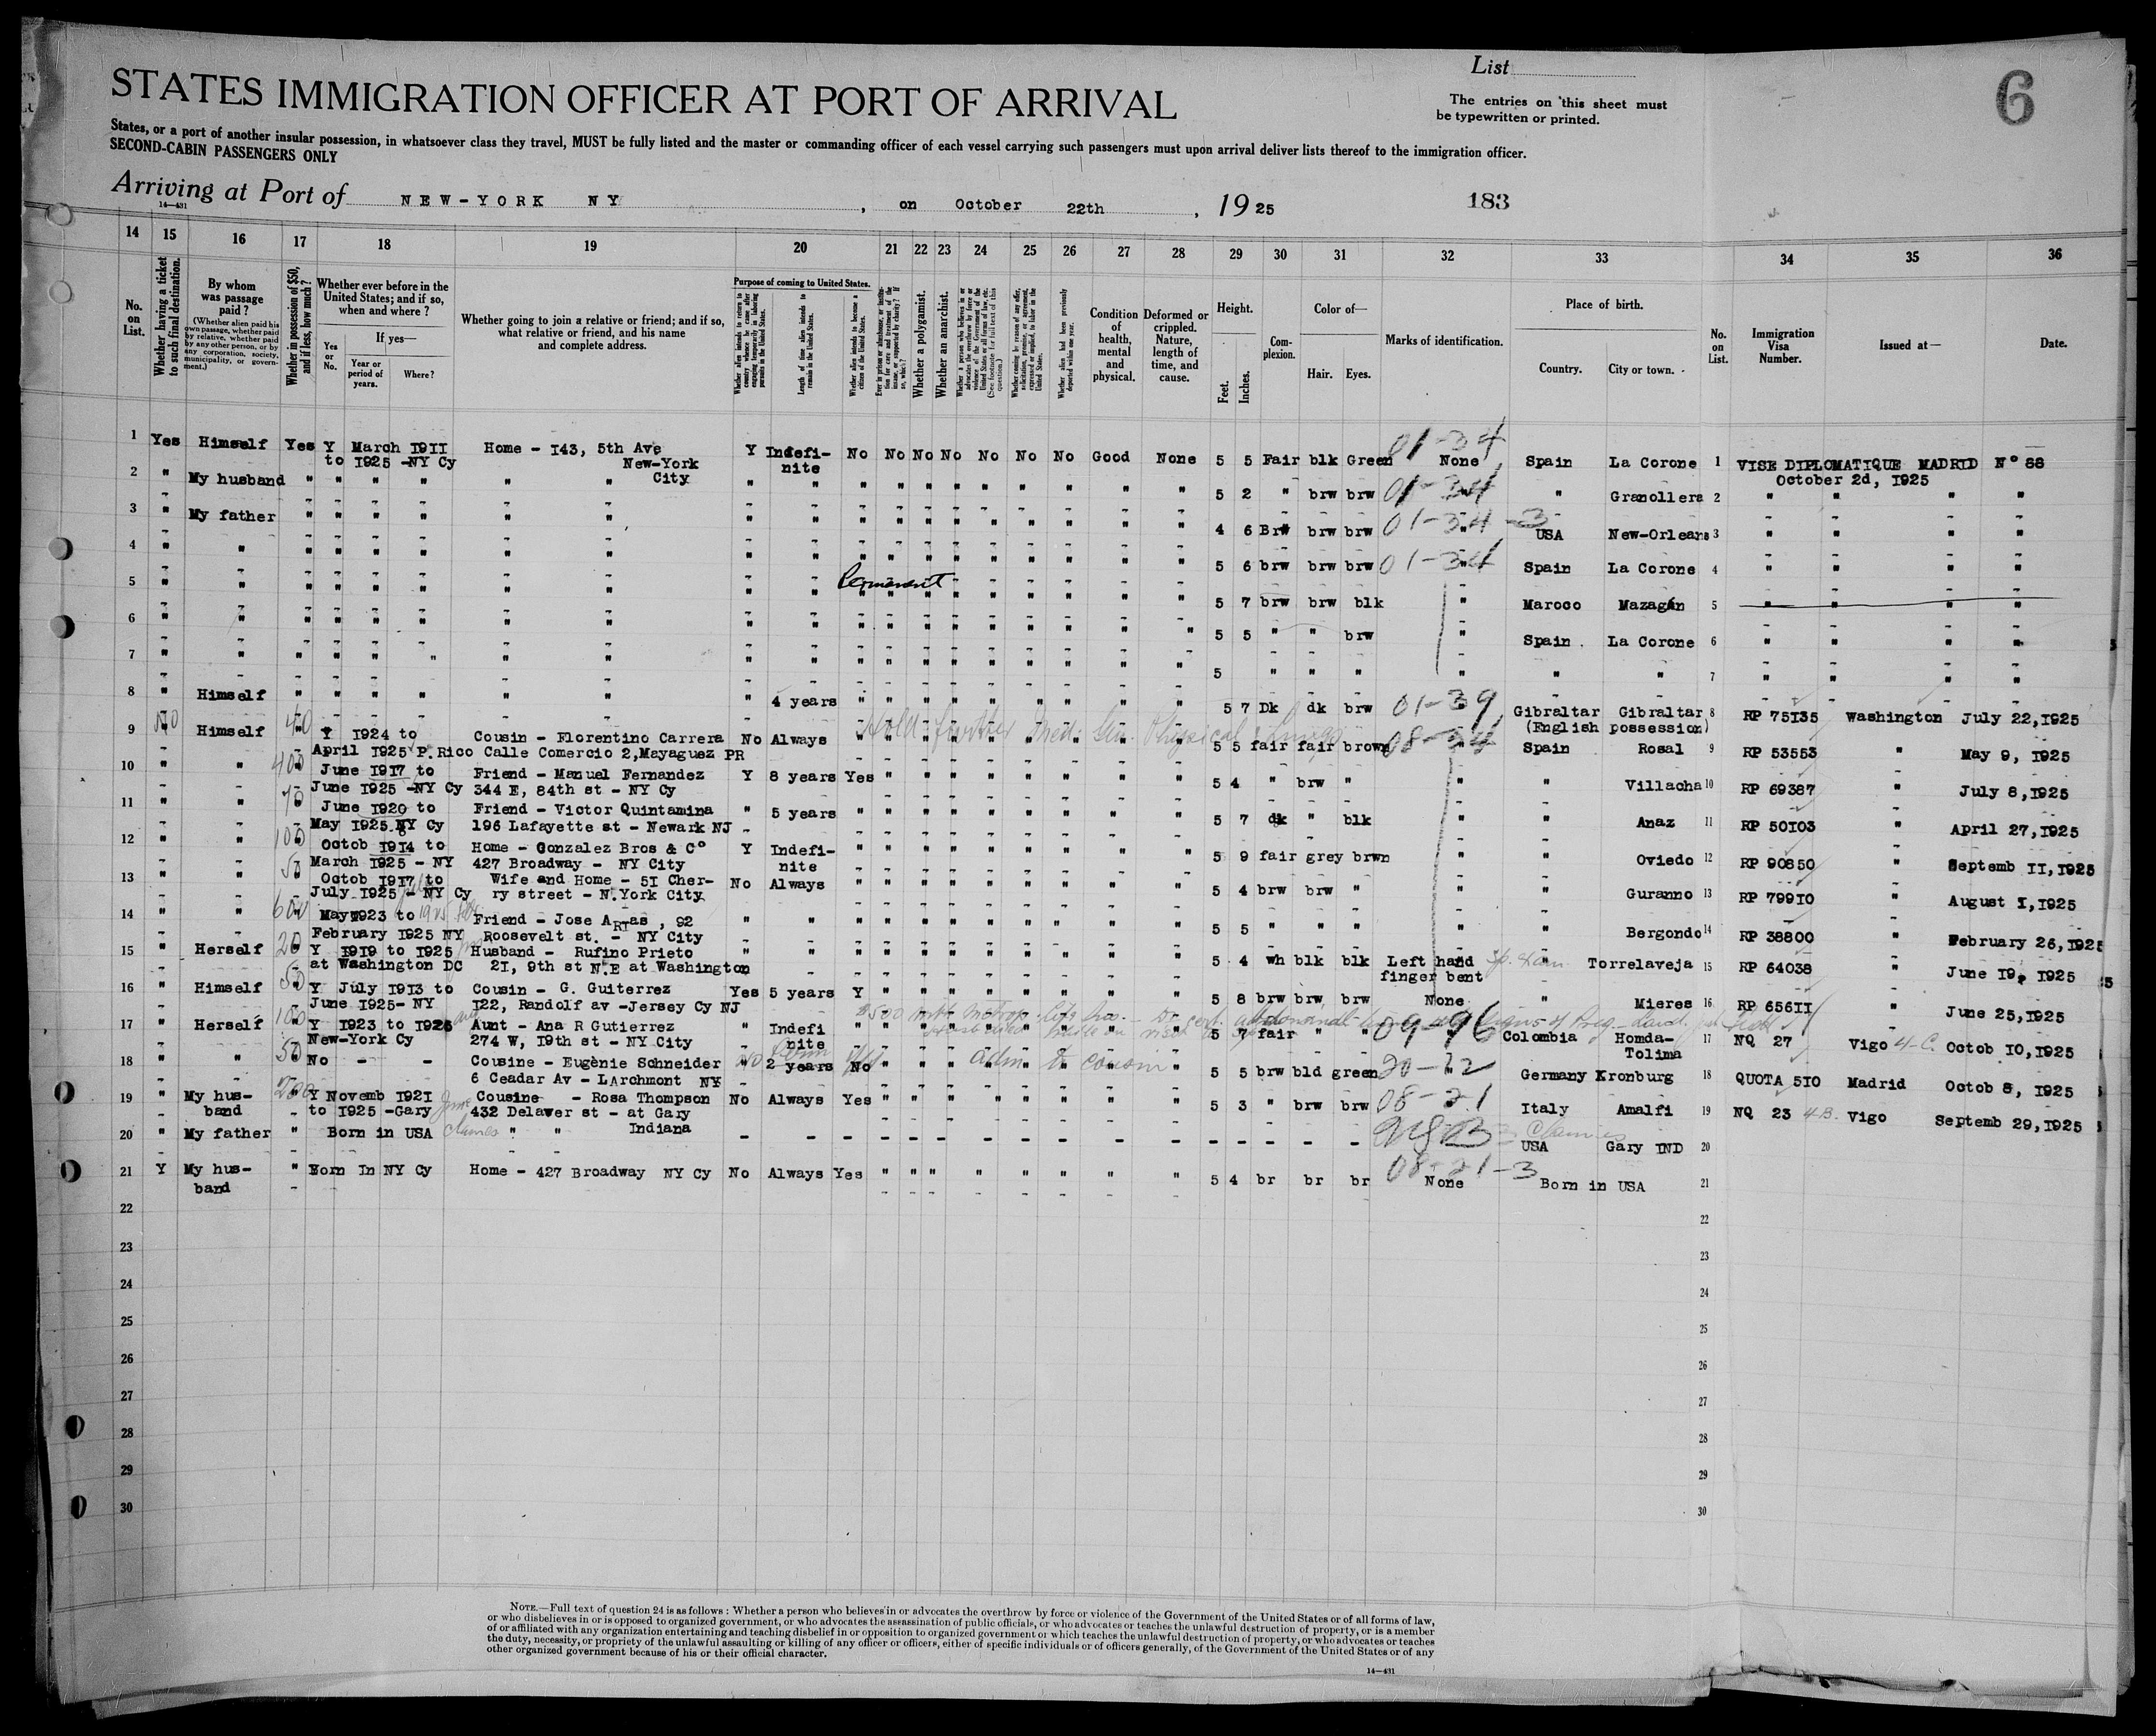 List
6
STATES IMMIGRATION OFFICER AT PORT OF ARRIVAL
The entries on this sheet must
be typewritten or printed.
States, or a port of another insular possession, in whatsoever class they travel, MUST be fully listed and the master or commanding officer of each vessel carrying such passengers must upon arrival deliver lists thereof to the immigration officer.
SECOND-CABIN PASSENGERS ONLY
Arriving at Port of NEW-YORK NY, on October 22th, 1925 183
14—431
14 15 16 17 18 19 20 21 22 23 24 25 26 27 28 29 30 31 32 33 34 35 36
No. on List.
Whether having a ticket to such final destination.
By whom was passage paid?
(Whether alien paid his own passage, whether paid by relative, whether paid by any other person, or by any corporation, society, municipality, or government.)
Whether in possession of $50, and if less, how much?
Whether ever before in the United States; and if so, when and where?
If yes—
Yes or No.
Year or period of years.
Where?
Whether going to join a relative or friend; and if so, what relative or friend, and his name and complete address.
Purpose of coming to United States.
Length of time alien intends to remain in the United States.
Whether alien intends to become a citizen of the United States.
Whether a polygamist.
Whether an anarchist.
Condition of health, mental and physical.
Deformed or crippled. Nature, length of time, and cause.
Height.
Feet.
Inches.
Complexion.
Color of—
Hair.
Eyes.
Marks of identification.
Place of birth.
Country.
City or town.
No. on List.
Immigration Visa Number.
Issued at—
Date.
1 Yes Himself Yes Y March 1911 Home - 143, 5th Ave Y Indefi- No No No No No No No Good None 5 5 Fair blk Green 01-34 None Spain La Corone 1 VISE DIPLOMATIQUE MADRID N° 88
to 1925 -NY Cy New-York City nite October 2d, 1925
2 " My husband " " " " " " " " " " " " " " " " " 5 2 " brw brw 01-34 " Granollers 2 " " " "
3 " My father " " " " " " " " " " " " " " " " " 4 6 Brw brw brw 01-34-3 USA New-Orleans 3 " " " "
4 " " " " " " " " " " " " " " " " " " " 5 6 brw brw brw 01-34 Spain La Corone 4 " " " "
5 " " " " " " " " " " Permanent " " " " " " " 5 7 brw brw blk " Maroco Mazagán 5 " " " "
6 " " " " " " " " " " " " " " " " " " " 5 5 " " brw " Spain La Corone 6 " " " "
7 " " " " " " " " " " " " " " " " " " " 5 " " " " " " 7 " " " "
8 " Himself " " " " " " " 4 years " " " " " " " " " 5 7 Dk dk brw 01-39 Gibraltar Gibraltar 8 RP 75135 Washington July 22,1925
(English possession)
9 No Himself 40 Y 1924 to Cousin - Florentino Carrera No Always " " " " " " " " " 5 5 fair fair brown 08-34 Spain Rosal 9 RP 53553 " May 9, 1925
April 1925 P.Rico Calle Comercio 2,Mayaguez PR
10 " " 400 June 1917 to Friend - Manuel Fernandez Y 8 years Yes " " " " " " " " 5 4 " brw " " " Villacha 10 RP 69387 " July 8,1925
June 1925 -NY Cy 344 E, 84th st - NY Cy
11 " " 70 June 1920 to Friend - Victor Quintamina " 5 years " " " " " " " " " 5 7 dk " blk " " Anaz 11 RP 50103 " April 27,1925
May 1925 NY Cy 196 Lafayette st - Newark NJ
12 " " 100 Octob 1914 to Home - Gonzalez Bros & C° Y Indefi- " " " " " " " " " 5 9 fair grey brwn " " Oviedo 12 RP 90850 " Septemb 11,1925
March 1925 - NY 427 Broadway - NY City nite
13 " " 50 Octob 1917 to Wife and Home - 51 Cher- No Always " " " " " " " " " 5 4 brw brw " " " Guranno 13 RP 79910 " August 1,1925
July 1925 - NY Cy ry street - N.York City
14 " " 600 May 1923 to Friend - Jose ARIas , 92 " " " " " " " " " " " 5 5 " " " " " Bergondo 14 RP 38800 " February 26,1925
February 1925 NY Roosevelt st. - NY City
15 " Herself 20 Y 1919 to 1925 Husband - Rufino Prieto " " " " " " " " " " " 5 4 wh blk blk Left hand " Torrelaveja 15 RP 64038 " June 19, 1925
at Washington DC 21, 9th st N.E at Washington finger bent
16 " Himself 50 Y July 1913 to Cousin - G. Guiterrez Yes 5 years Y " " " " " " " " 5 8 brw brw brw None " Mieres 16 RP 65611 " June 25,1925
June 1925- NY 122, Randolf av -Jersey Cy NJ
17 " Herself 100 Y 1923 to 1925 Aunt - Ana R Gutierrez " Indefi " " " " " " " " 5 7 fair " " 09-96 Colombia Homda- 17 NQ 27 Vigo 4-C. Octob 10,1925
New-York Cy 274 W, 19th st - NY City nite Tolima
18 " " 50 No - - Cousine - Eugènie Schneider No 2 years No " " " adm to cousin " " 5 5 brw bld green 20-12 Germany Kronburg 18 QUOTA 510 Madrid Octob 8, 1925
6 Ceadar Av - LArchmont NY
19 " My hus- 200 Y Novemb 1921 Cousine - Rosa Thompson No Always Yes " " " " " " " " 5 3 " brw brw 08-21 Italy Amalfi 19 NQ 23 4B. Vigo Septemb 29,1925
band to 1925 -Gary 432 Delawer st - at Gary
20 " My father " Born in USA " " Indiana - - - - - - - - - - - USA Gary IND 20
21 Y My hus- " Born In NY Cy Home - 427 Broadway NY Cy No Always Yes " " " " " " " " 5 4 br br br 08-21-3 None Born in USA 21
band
22 22
23 23
24 24
25 25
26 26
27 27
28 28
29 29
30 30
NOTE.—Full text of question 24 is as follows: Whether a person who believes in or advocates the overthrow by force or violence of the Government of the United States or of all forms of law,
or who disbelieves in or is opposed to organized government, or who advocates the assassination of public officials, or who advocates or teaches the unlawful destruction of property, or is a member
of or affiliated with any organization entertaining and teaching disbelief in or opposition to organized government or which teaches the unlawful destruction of property, or who advocates or teaches
the duty, necessity, or propriety of the unlawful assaulting or killing of any officer or officers, either of specific individuals or of officers generally, of the Government of the United States or of any
other organized government because of his or their official character.
14—431